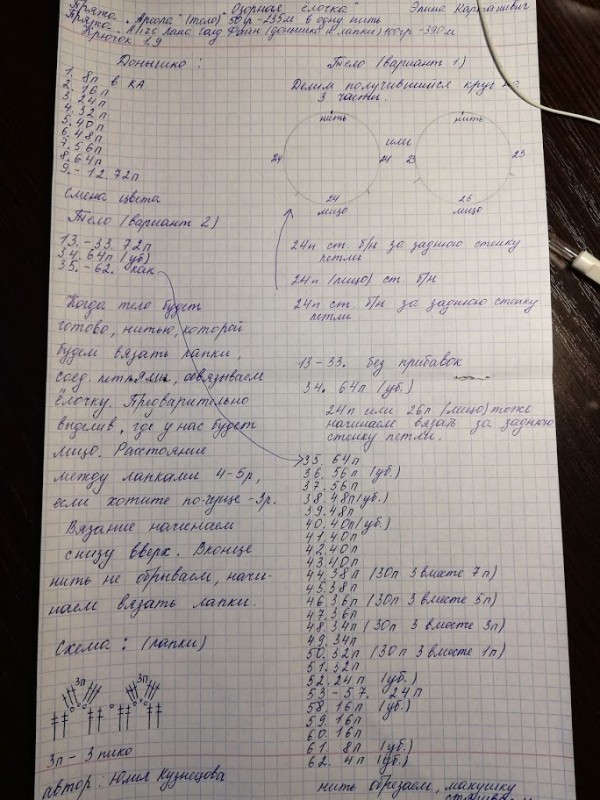 "Озорная ёлочка" Элина Карташевич
Пряжа "Ариола" (тело) 50гр -235м в одну нить
Пряжа "Alize Лана Голд Файн (донышко и лапки) 100гр -390м
Крючок 1,9
Донышко:
1. 8п в КА
2. 16п
3. 24п
4. 32п
5. 40п
6. 48п
7. 56п
8. 64п
9. - 12. 72п
Смена цвета
Тело (вариант 2)
13. - 33. 72п
34. 64п (уб)
35. - 62. как
Когда тело будет
готово, нитью, которой
будем вязать лапки,
соед. петлями, обвязываем
ёлочку. Предварительно
выделив, где у нас будет
лицо. Расстояние
между лапками 4-5р,
если хотите по-чаще -3р.
Вязание начинаем
снизу вверх. Вконце
нить не обрываем, начи-
наем вязать лапки.
Схема: (лапки)
3п 3п
3п - 3 пико
автор: Юлия Кузнецова
Тело (вариант 1)
Делим получившийся круг на
3 части.
нить или нить
24 24 23 23
24 26
лицо лицо
24п ст. б/н за заднюю стенку
петли
24п (лицо) ст. б/н
24п ст. б/н за заднюю стенку
петли
13-33. без прибавок
34. 64п (уб.)
24п или 26п (лицо) тоже
начинаем вязать за заднюю
стенку петли.
35. 64п
36. 56п (уб.)
37. 56п
38. 48п (уб.)
39. 48п
40. 40п (уб.)
41. 40п
42. 40п
43. 40п
44. 38п (30п 3 вместе 7п)
45. 38п
46. 36п (30п 3 вместе 5п)
47. 36п
48. 34п (30п 3 вместе 3п)
49. 34п
50. 32п (30п 3 вместе 1п)
51. 32п
52. 24п (уб.)
53 - 57. 24п
58. 16п (уб.)
59. 16п
60. 16п
61. 8п (уб.)
62. 4п (уб.)
нить обрезаем, макушку